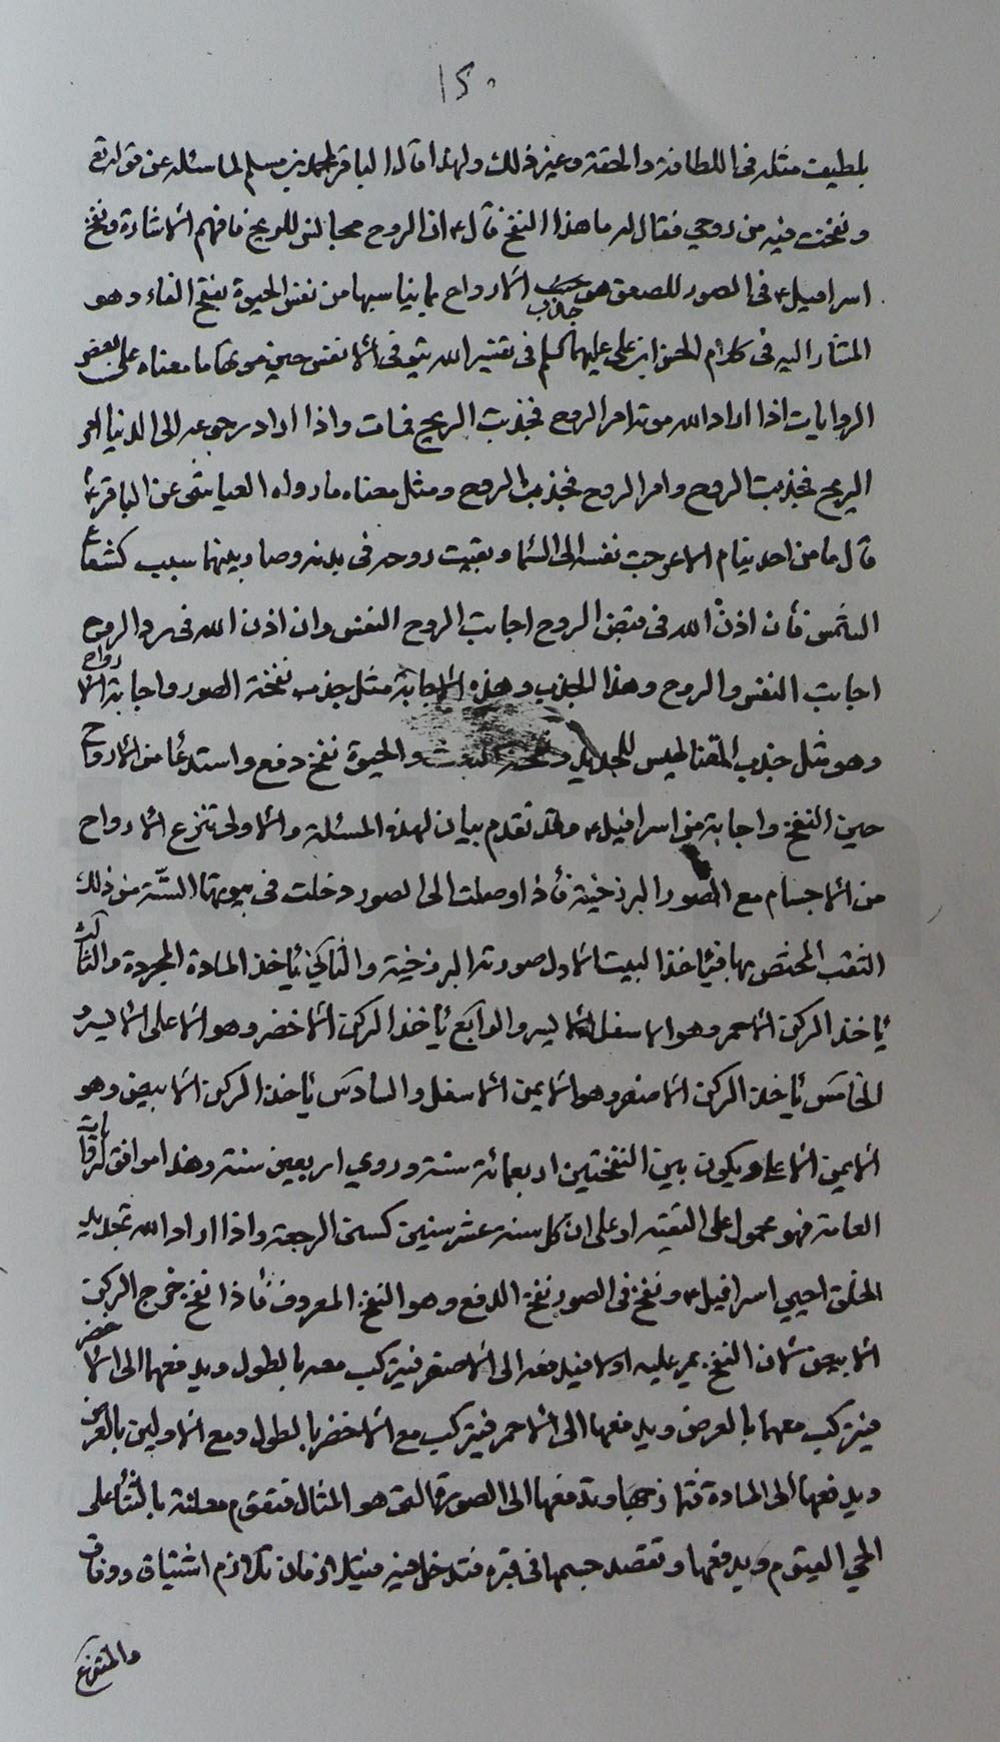 ١٤٠
بلطيف مثله في اللطافة والخفة وغير ذلك ولهذا قال الباقر لمحمد بن مسلم لما سئله عن قوله تع
ونفخت فيه من روحي فقال له ما هذا النفخ قال ع ان الروح مجانس للريح فافهم الاشارة ونفخ
اسرافيل ع في الصور للصعق هو جذب الارواح بما يناسبها من نفس الحيوة بفتح الفاء وهو
المشار اليه في كلام الحسن ابن علي عليهما السلم في تفسير الله يتوفى الانفس حين موتها ما معناه على بعض
الروايات اذا اراد الله موته امر الروح فجذبت الريح فمات واذا اراد رجوعه الى الدنيا امر
الريح فجذبت الروح وامر الروح فجذبت الروح ومثل معناه ما رواه العياشي عن الباقر ع
قال ما من احد ينام الا عرجت نفسه الى السما وبقيت روحه في بدنه وصار بينهما سبب كشعاع
الشمس فأن اذن الله في قبض الروح اجابت الروح النفس وان اذن الله في رد الروح
اجابت النفس والروح وهذا الجذب وهذه الاجابة مثل جذب نفخة الصور واجابة الارواح
وهو مثل جذب المقناطيس للحديد ونفخة البعث والحيوة نفخ دفع واستدعا من الارواح
حين النفخ واجابة من اسرافيل ع وقد تقدم بيان لهذه المسئلة والاولى تنزع الارواح
من الاجسام مع الصور البرزخية فأذا وصلت الى الصور دخلت في بيوتها الستة من ذلك
الثقب المختص بها فيأخذ البيت الاول صورته البرزخية والثاني يأخذ المادة المجردة والثالث
يأخذ الركن الاحمر وهو الاسفل الايسر والرابع يأخذ الركن الاخضر وهو الاعلى الايسر و
الخامس يأخذ الركن الاصفر وهو الايمن الاسفل والسادس يأخذ الركن الابيض وهو
الايمن الاعلى ويكون بين النفختين اربعمائة سنة وروي اربعين سنة وهذا موافق لروايات
العامة فهو محمول على التقية او على ان كل سنة عشر سنين كسني الرجعة واذا اراد الله تجديد
الخلق احيي اسرافيل ع ونفخ في الصور نفخ الدفع وهو النفخ المعروف فأذا نفخ خرج الركن
الابيض لان النفخ يمر عليه اولا فيدفعه الى الاصفر فيتركب معه بالطول ويدفعهما الى الاخضر
فيتركب معهما بالعرض ويدفعها الى الاحمر فيتركب مع الاخضر بالطول ومع الاولين بالعرض
ويدفعها الى المادة فتمازجها وتدفعها الى الصورة التي هو المثال فتقوم معلنة بالثناء على
الحي القيوم ويدفعها وتقصد جسمها في قبره فتدخل فيه فيتلازمان تلازم اشتياق ووفاق